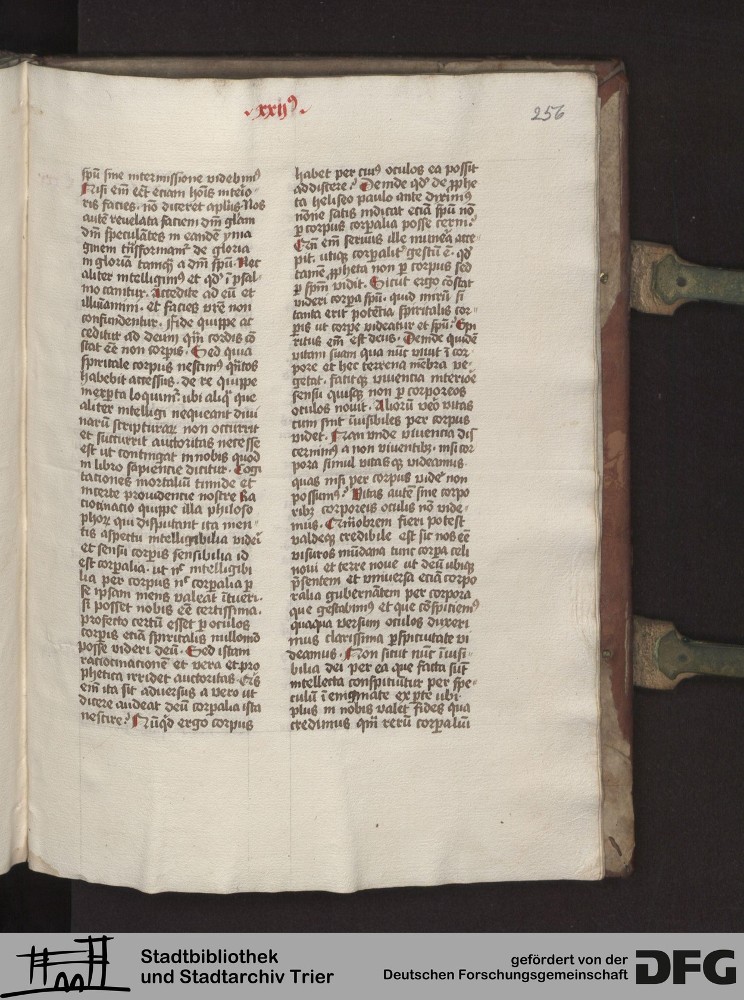 xxijꝰ
256
spū sine intermissione videbimꝰ
Nisi em̄ eēt etiam hoīs interio-
ris facies. nō diceret aplūs. Nos
autē reuelata faciem dn̄i glam
dn̄i speculātes in eandē yma
ginem trāsformamr̄ de gloria
in gloriā tamqꝫ a dn̄i spū. Nec
aliter intelligimꝰ et qđ ī psal-
mo canitur. Accedite ad eū et
illuīamini. et facies vrē non
confundentur. Fide quippe ac
ceditur ad deum qm̄ cordis cō
stat eē non corpis. Sed quia
spiritale corpus nescimꝰ qn̄tos
habebit accessus. de re quippe
inexpta loquimr̄. ubi aliqͥ que
aliter intelligi nequeant diui
narū scripturaꝝ non occurrit
et succurrit auctoritas necesse
est ut contingat in nobis quod
in libro sapientie dicitur. Cogi
taciones mortaliū timide et
incerte prouidencie nostre Ra
ciocinatio quippe illa philoso
phoꝝ qui disputant ita men-
tis aspectu intelligibilia videri
et sensu corpis sensibilia id
est corpalia. ut nͨ intelligibi
lia per corpus nͨ corpalia p
se ipsam mens valeat ītueri.
si posset nobis eē certissima.
profecto certū esset p oculos
corpis etiā spiritalis nullomō
posse videri deū. Sed istam
raciocinacionē et vera et pro
phetica irridet auctoritas. Qis
em̄ ita sit aduersus a vero ut
dicere audeat deū corpalia ista
nescire? Nūqđ ergo corpus
habet per cuiꝰ oculos ea possit
addiscere? Deinde qđ de pphe
ta heliseo paulo ante diximꝰ
nōne satis indicat etiā spū nō
p corpus corpalia posse cerni?
Cū em̄ seruus ille munēa acce-
pit. utiqꝫ corpalitͬ gestū ē. qđ
tamē ppheta non p corpus sed
p spm̄ vidit. Sicut ergo cōstat
videri corpa spū. quid mirū si
tanta erit potētia spiritalis cor-
pis ut corpe videatur et spū? Spi
ritus em̄ est deus. Deinde quidē
vitam suam qua nūc viuit ī cor-
pore et hec terrena mēbra ve-
getat. facitqꝫ viuencia interioē
sensu quisqꝫ non p corporeos
oculos nouit. Alioꝝ vēo vitas
cum sint īuisibiles per corpus
videt. Nam vnde viuencia dis
cernimꝰ a non viuentibꝫ. nisi cor
pora simul vitasqꝫ videamus
quas nisi per corpus videē non
possumꝰ? Vitas autē sine corpo
ribꝫ corporeis oculis nō vide-
mus. Qm̄obrem fieri potest
valdeqꝫ credibile est sic nos eē
visuros mūdana tunc corpa celi
noui et terre noue ut deū ubiqꝫ
p̄sentem et vniuersa etiā corpo
ralia gubernātem per corpora
que gestabimꝰ et que cōspiciemꝰ
quaqua versum oculos duxeri
mus clarissima pspicuitate vi
deamus. Non sicut nūc īuisi-
bilia dei per ea que facta sūt
intellecta conspiciūtur per spe-
culū ī enigmate ex pte ubi
plus in nobis valet fides qua
credimus qm̄ rerū corpaliū
Stadtbibliothek
und Stadtarchiv Trier
gefördert von der
Deutschen Forschungsgemeinschaft
DFG